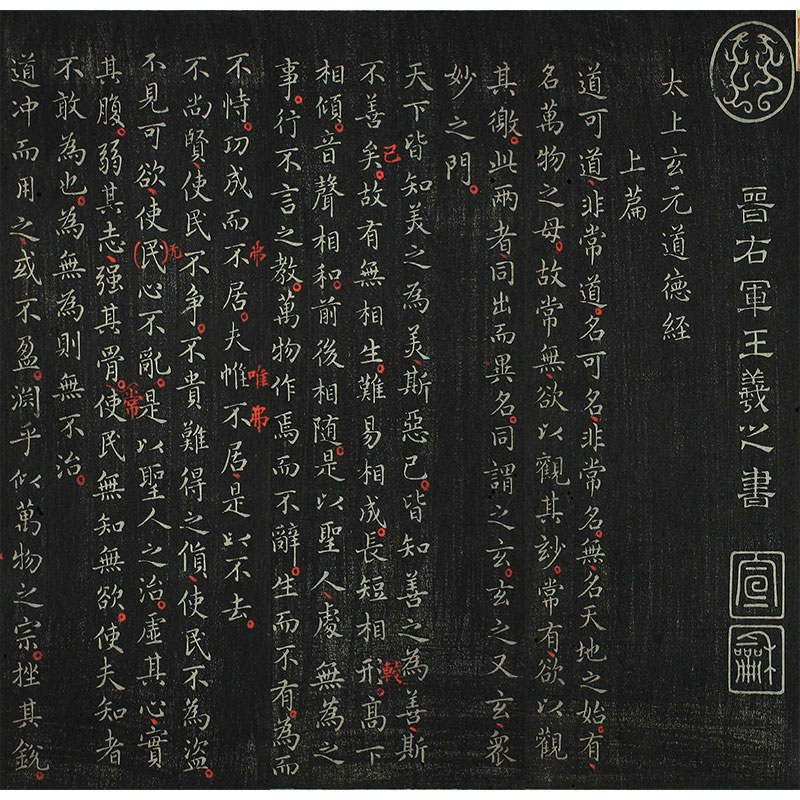 晉右軍王羲之書
宣龢
太上玄元道德經
上篇
道可道、非常道。名可名、非常名。無、名天地之始。有、
名萬物之母。故常無、欲以觀其玅。常有、欲以觀
其徼。此兩者、同出而異名。同謂之玄。玄之又玄、衆
妙之門。
天下皆知美之為美、斯惡已。皆知善之為善、斯
已
不善矣。故有無相生。難易相成。長短相形。高下
較
相傾。音聲相和。前後相随。是以聖人、處無為之
事。行不言之教。萬物作焉而不辭。生而不有。為而
不恃。功成而不居。夫惟不居、是以不去。
弗
唯弗
不尚賢、使民不争。不貴難得之貨、使民不為盗
不見可欲、使(民)心不亂。是以聖人之治。虛其心、實
无
其腹。弱其志、强其骨。使民無知無欲。使夫知者
常
不敢為也。為無為則無不治。
道冲而用之、或不盈。渊乎似萬物之宗。挫其銳。